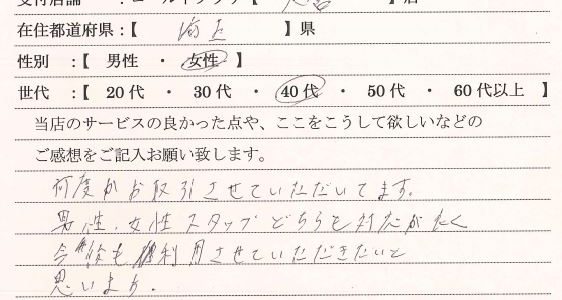 在住都道府県：【 埼玉 】県
性別 ：【 男性 ・ 女性 】
世代 ：【 20代 ・ 30代 ・ 40代 ・ 50代 ・ 60代以上 】
当店のサービスの良かった点や、ここをこうして欲しいなどの
ご感想をご記入お願い致します。
何度かお取引させていただいてます。
男性、女性スタッフどちらも対応がよく
今後も利用させていただきたいと
思います。